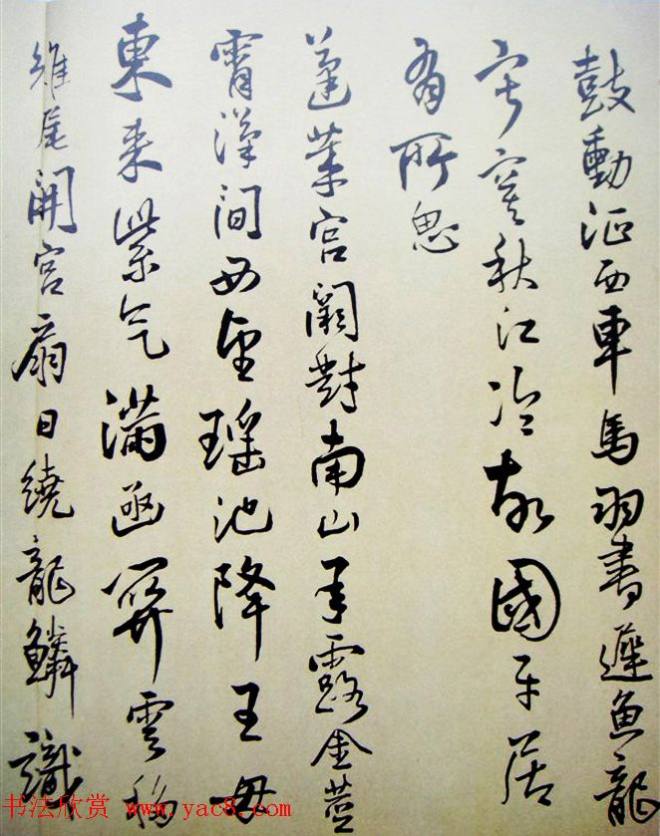 鼓動征西車馬羽書遲魚龍
寂寞秋江冷故國平居
有所思
蓬萊宮闕對南山承露金莖
霄漢間西望瑶池降王母
東来紫气滿函関雲移
雉尾開宮扇日繞龍鱗識
书法欣赏 www.yac8.com